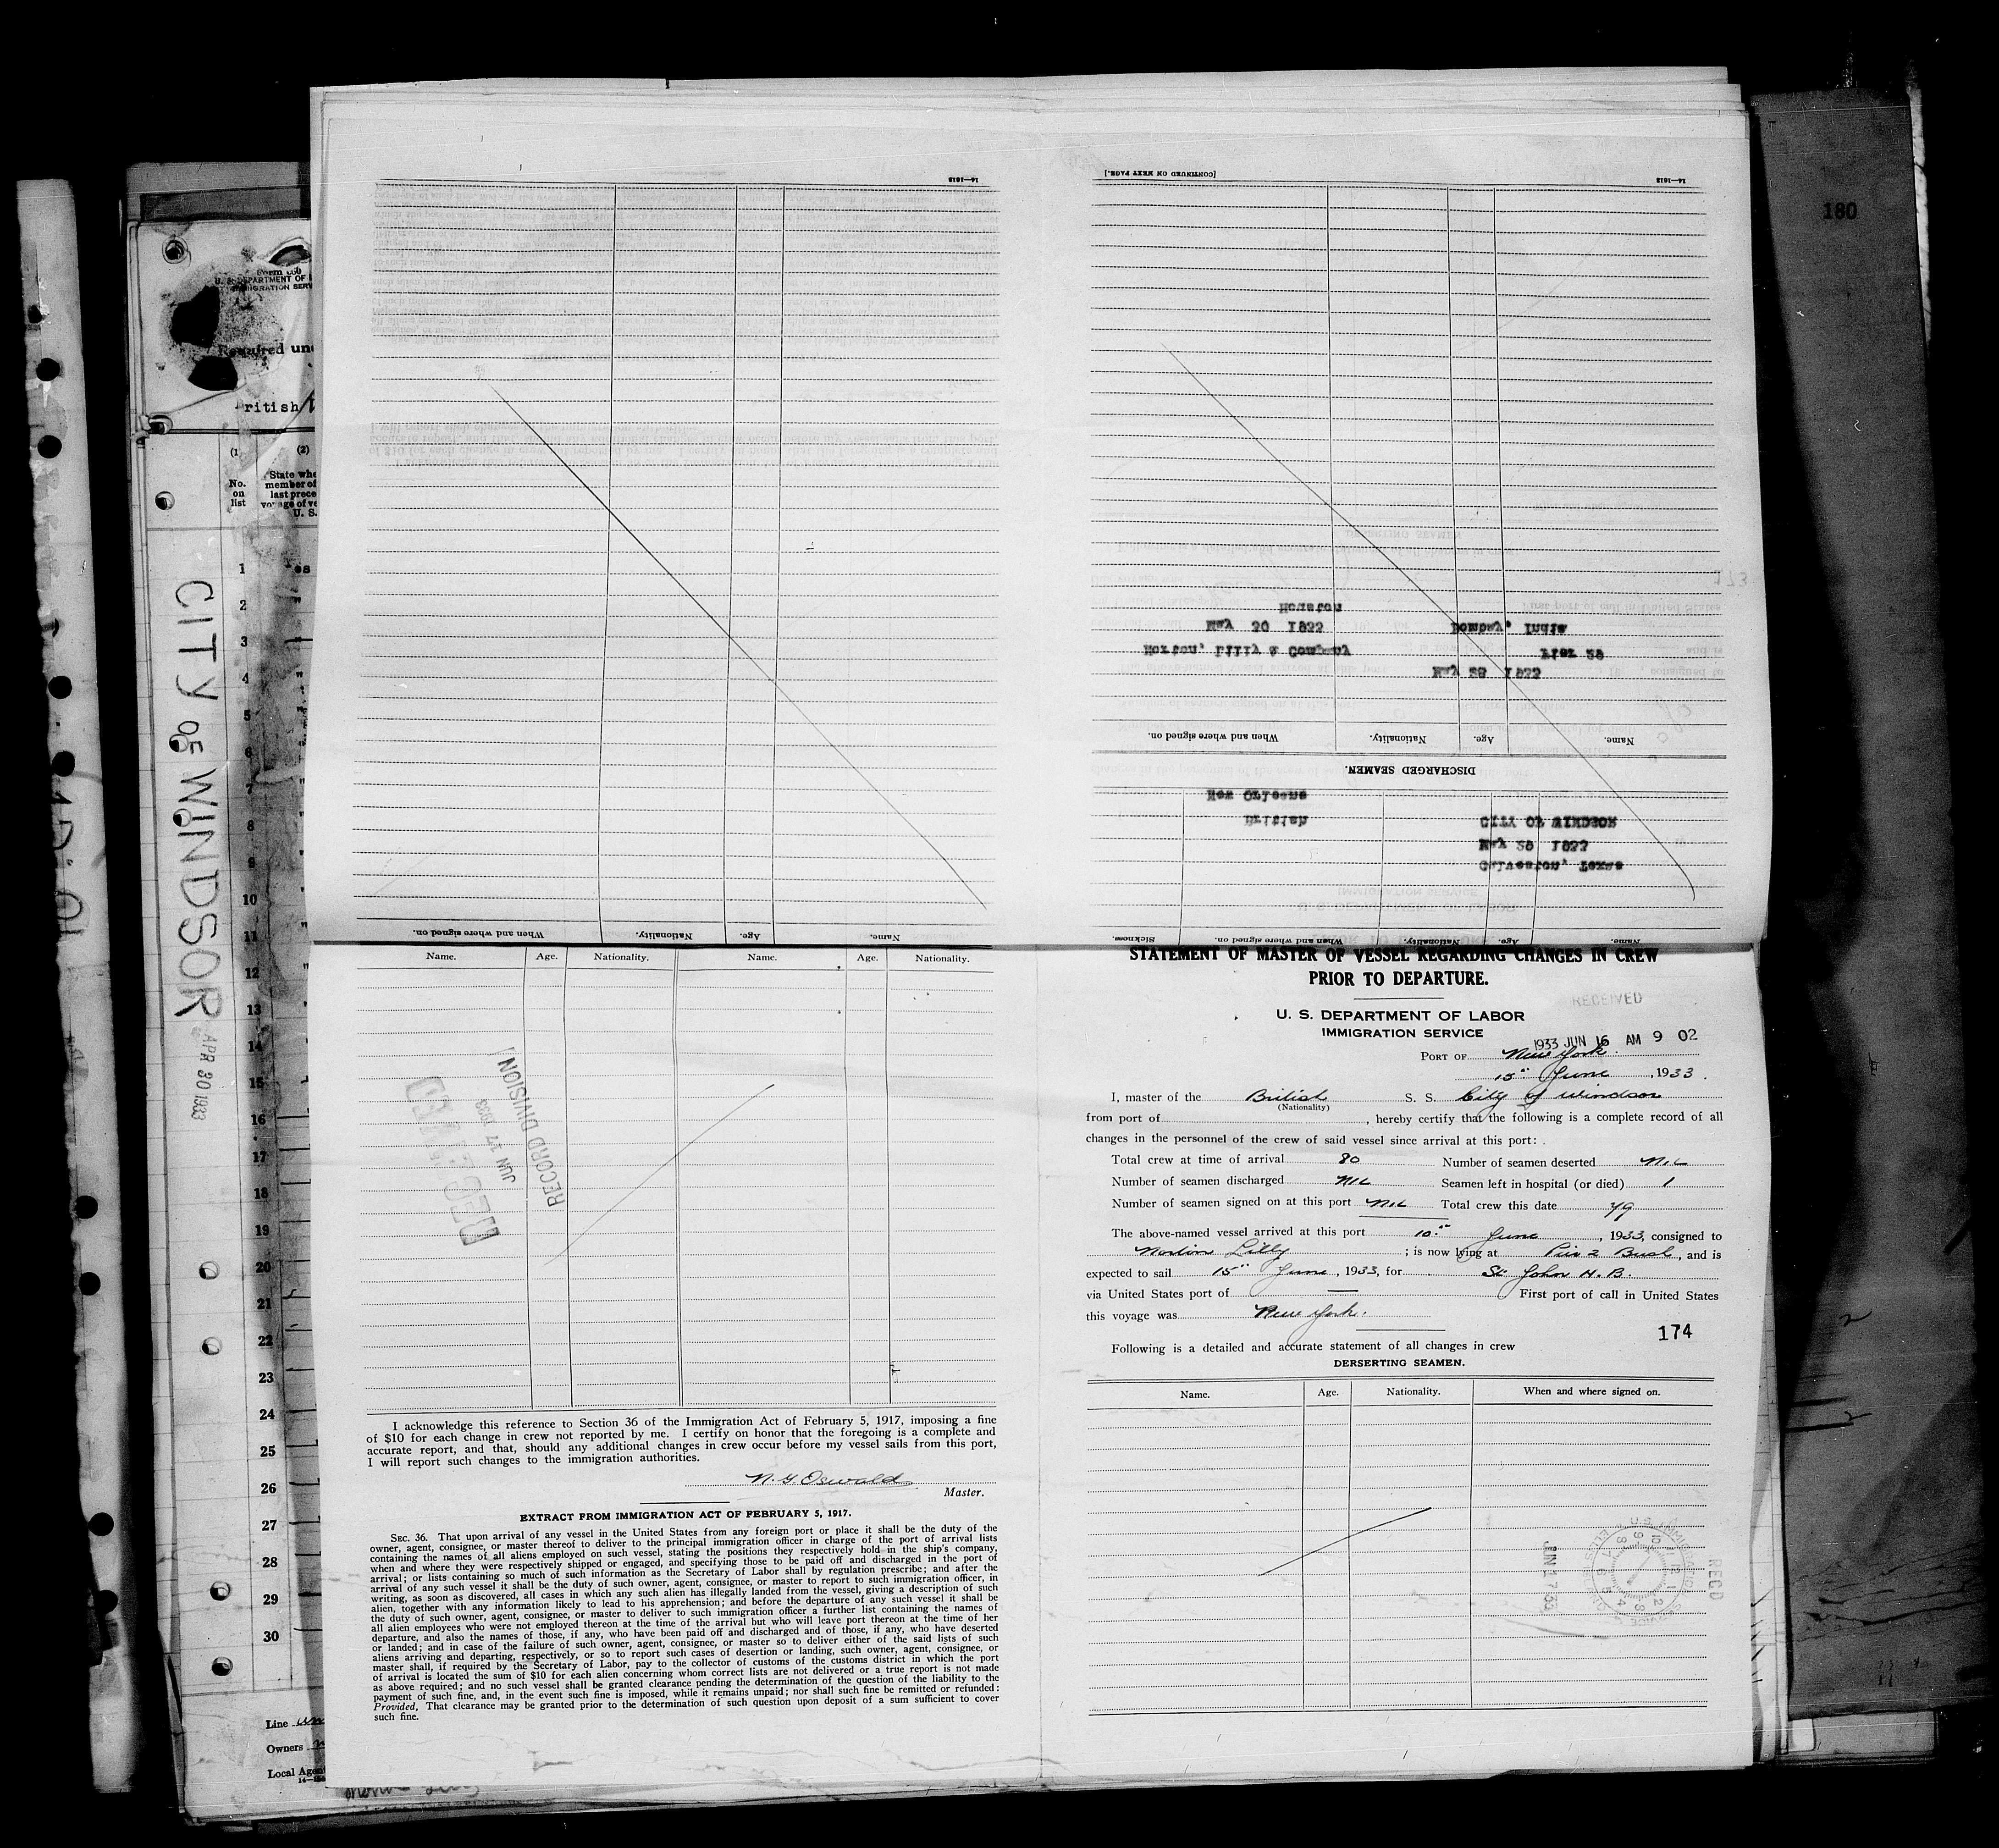 180
Form 680
U. S. DEPARTMENT OF
IMMIGRATION SERV
Required und
British
(1) (2)
No. on list
State whe
member of
last prece
voyage of ve
U. S.
CITY OF WINDSOR
APR 30 1933
1
2
3
4
5
6
7
8
9
10
11
12
13
14
15
16
17
18
19
20
21
22
23
24
25
26
27
28
29
30
Line
Owners
Local Agen
14—1613
[CONTINUED ON NEXT PAGE.]
14—1613
Name. Age. Nationality. When and where signed on.
Name. Age. Nationality. When and where signed on. Sickness.
Galveston, Texas
May 28 1933
CITY OF WINDSOR
British
New Orleans
DISCHARGED SEAMEN.
Name. Age. Nationality. When and where signed on.
May 28 1933
Norton, Lilly & Company
Pier 28
May 20 1933
Bombay, India
Houston
Name. Age. Nationality. Name. Age. Nationality.
RECORD DIVISION
JUN 17 1933
I acknowledge this reference to Section 36 of the Immigration Act of February 5, 1917, imposing a fine
of $10 for each change in crew not reported by me. I certify on honor that the foregoing is a complete and
accurate report, and that, should any additional changes in crew occur before my vessel sails from this port,
I will report such changes to the immigration authorities.
N. G. Oswald
Master.
EXTRACT FROM IMMIGRATION ACT OF FEBRUARY 5, 1917.
SEC. 36. That upon arrival of any vessel in the United States from any foreign port or place it shall be the duty of the
owner, agent, consignee, or master thereof to deliver to the principal immigration officer in charge of the port of arrival lists
containing the names of all aliens employed on such vessel, stating the positions they respectively hold in the ship's company,
when and where they were respectively shipped or engaged, and specifying those to be paid off and discharged in the port of
arrival; or lists containing so much of such information as the Secretary of Labor shall by regulation prescribe; and after the
arrival of any such vessel it shall be the duty of such owner, agent, consignee, or master to report to such immigration officer, in
writing, as soon as discovered, all cases in which any such alien has illegally landed from the vessel, giving a description of such
alien, together with any information likely to lead to his apprehension; and before the departure of any such vessel it shall be
the duty of such owner, agent, consignee, or master to deliver to such immigration officer a further list containing the names of
all alien employees who were not employed thereon at the time of the arrival but who will leave port thereon at the time of her
departure, and also the names of those, if any, who have been paid off and discharged and of those, if any, who have deserted
or landed; and in case of the failure of such owner, agent, consignee, or master so to deliver either of the said lists of such
aliens arriving and departing, respectively, or so to report such cases of desertion or landing, such owner, agent, consignee, or
master shall, if required by the Secretary of Labor, pay to the collector of customs of the customs district in which the port
of arrival is located the sum of $10 for each alien concerning whom correct lists are not delivered or a true report is not made
as above required; and no such vessel shall be granted clearance pending the determination of the question of the liability to the
payment of such fine, and, in the event such fine is imposed, while it remains unpaid; nor shall such fine be remitted or refunded:
Provided, That clearance may be granted prior to the determination of such question upon deposit of a sum sufficient to cover
such fine.
STATEMENT OF MASTER OF VESSEL REGARDING CHANGES IN CREW
PRIOR TO DEPARTURE.
RECEIVED
U. S. DEPARTMENT OF LABOR
IMMIGRATION SERVICE
1933 JUN 16 AM 9 02
PORT OF New York.
15" June, 1933.
I, master of the British S. S. City of Windsor
(Nationality)
from port of , hereby certify that the following is a complete record of all
changes in the personnel of the crew of said vessel since arrival at this port:
Total crew at time of arrival 80 Number of seamen deserted Nil
Number of seamen discharged Nil Seamen left in hospital (or died) 1
Number of seamen signed on at this port Nil Total crew this date 79
The above-named vessel arrived at this port 10" June, 1933, consigned to
Norton Lilly ; is now lying at Pier 2 Bush, and is
expected to sail 15" June, 1933, for St John N.B.
via United States port of — First port of call in United States
this voyage was New York.
174
Following is a detailed and accurate statement of all changes in crew
DERSERTING SEAMEN.
Name. Age. Nationality. When and where signed on.
JUN 17 33
REC'D